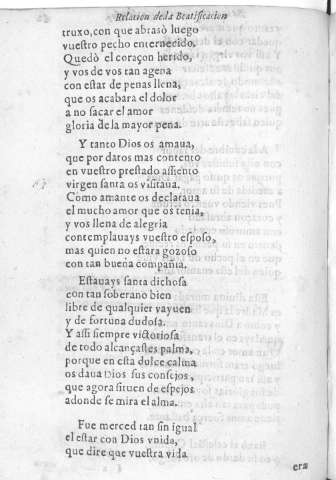 Relacion de la Beatificacion
truxo, con que abrasò luego
vuestro pecho enternecido.
Quedò el coraçon herido,
y vos de vos tan agena
con estar de penas llena,
que os acabara el dolor
a no sacar el amor
gloria de la mayor pena.
Y tanto Dios os amaua,
que por datos mas contento
en vuestro prestado assiento
virgen santa os visitaua.
Como amante os declaraua
el mucho amor que os tenia,
y vos llena de alegria
contemplauays vuestro esposo,
mas quien no estara gozoso
con tan buena compañia.
Estauays santa dichosa
con tan soberano bien
libre de qualquier vayuen
y de fortuna dudosa.
Y assi siempre victoriosa
de todo alcançastes palma,
porque en esta dulce calma
os daua Dios sus consejos,
que agora siruen de espejos
adonde se mira el alma.
Fue merced tan sin igual
el estar con Dios vnida,
que dire que vuestra vida
era